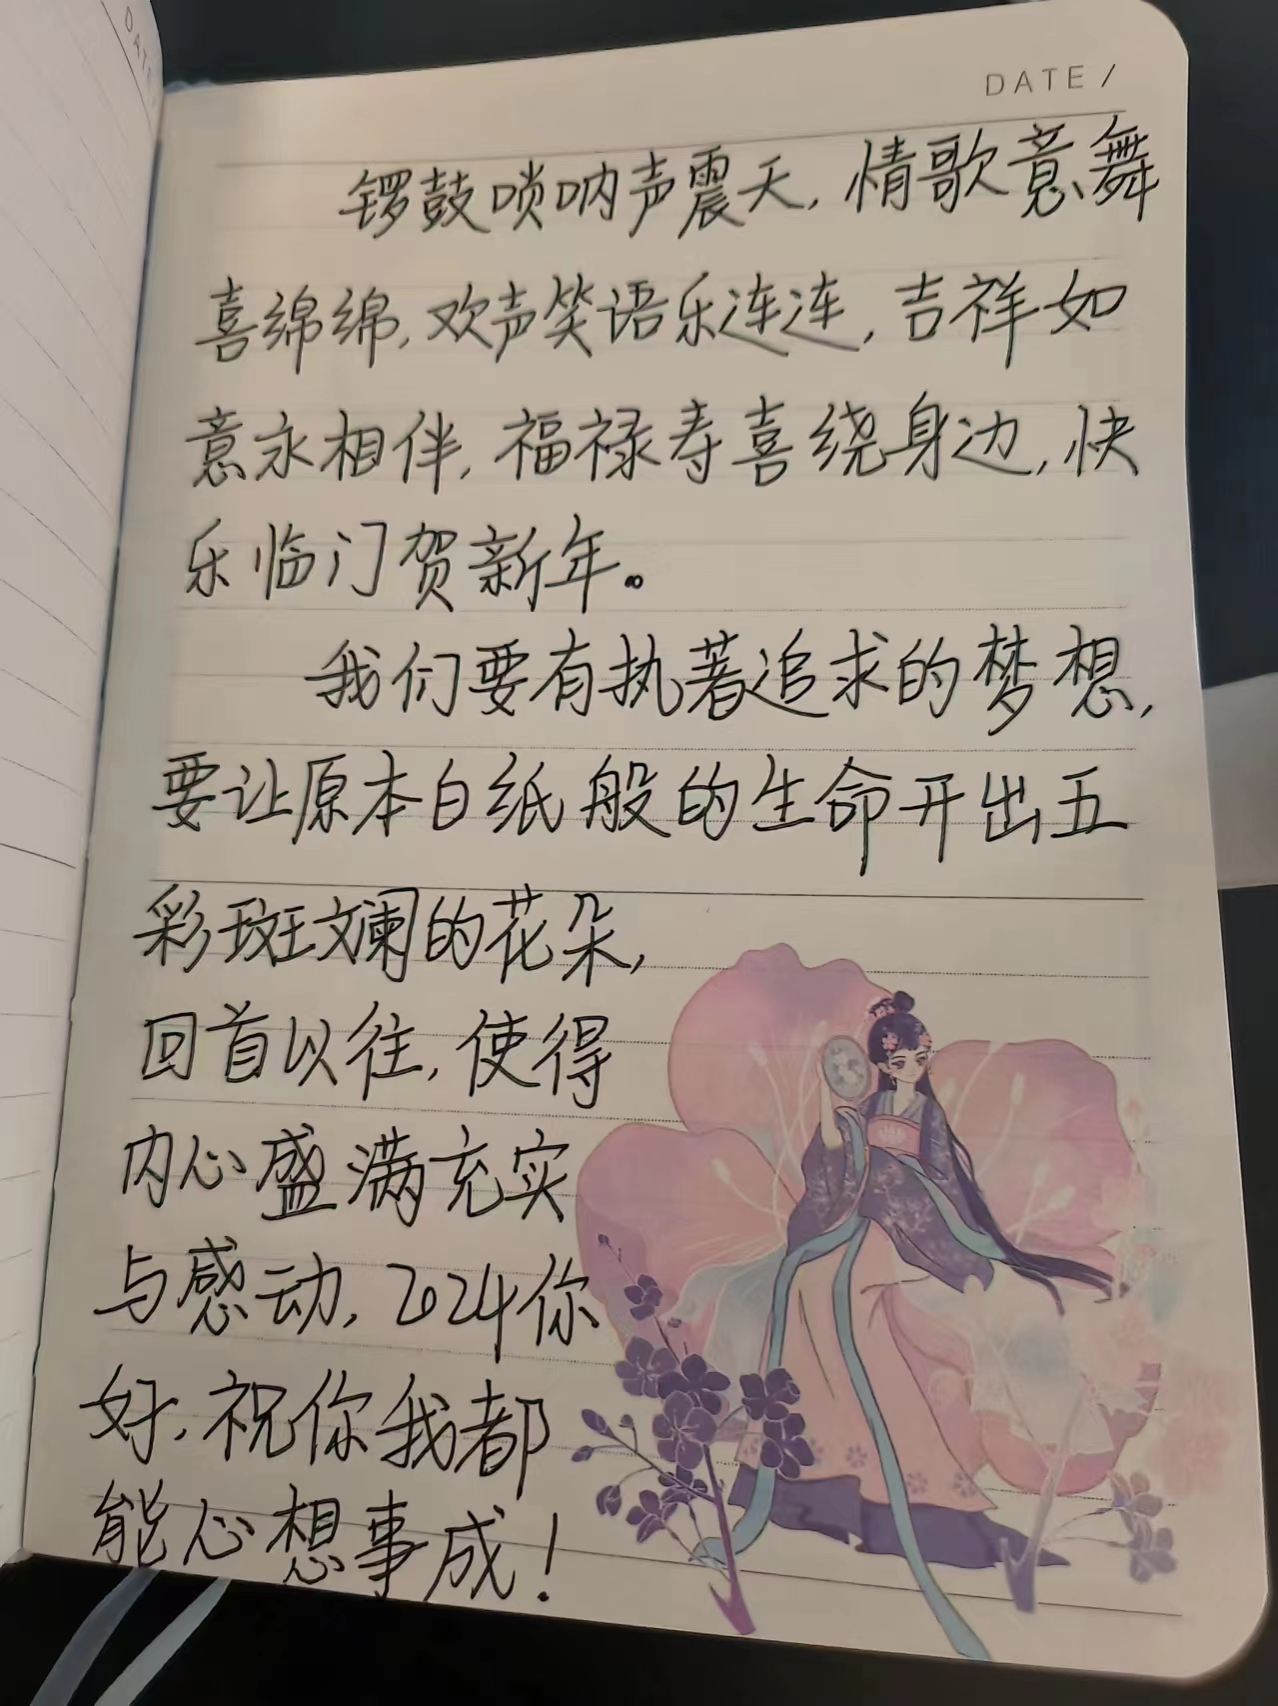 DATE /
锣鼓唢呐声震天,情歌意舞
喜绵绵,欢声笑语乐连连,吉祥如
意永相伴,福禄寿喜绕身边,快
乐临门贺新年。
我们要有执著追求的梦想,
要让原本白纸般的生命开出五
彩斑斓的花朵,
回首以往,使得
内心盛满充实
与感动,2024你
好,祝你我都
能心想事成!